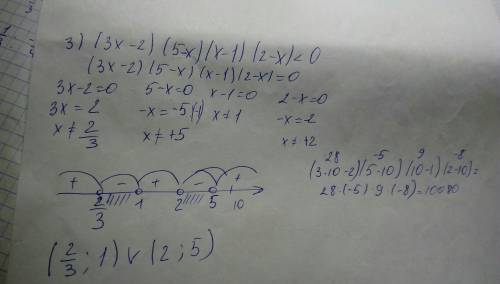 3) (3x-2)(5-x)(x-1)(2-x)<0
(3x-2)(5-x)(x-1)(2-x)=0
3x-2=0 5-x=0 x-1=0 2-x=0
3x=2 -x=-5(-1) x≠1 -x=2
x≠2/3 x≠+5 x≠+2
28 -5 9 -8
(3·10-2)(5-10)(10-1)(2-10)=
28·(-5)·9·(-8)=10080
+ - + - +
2/3 1 2 5 10
(2/3;1)∨(2;5)